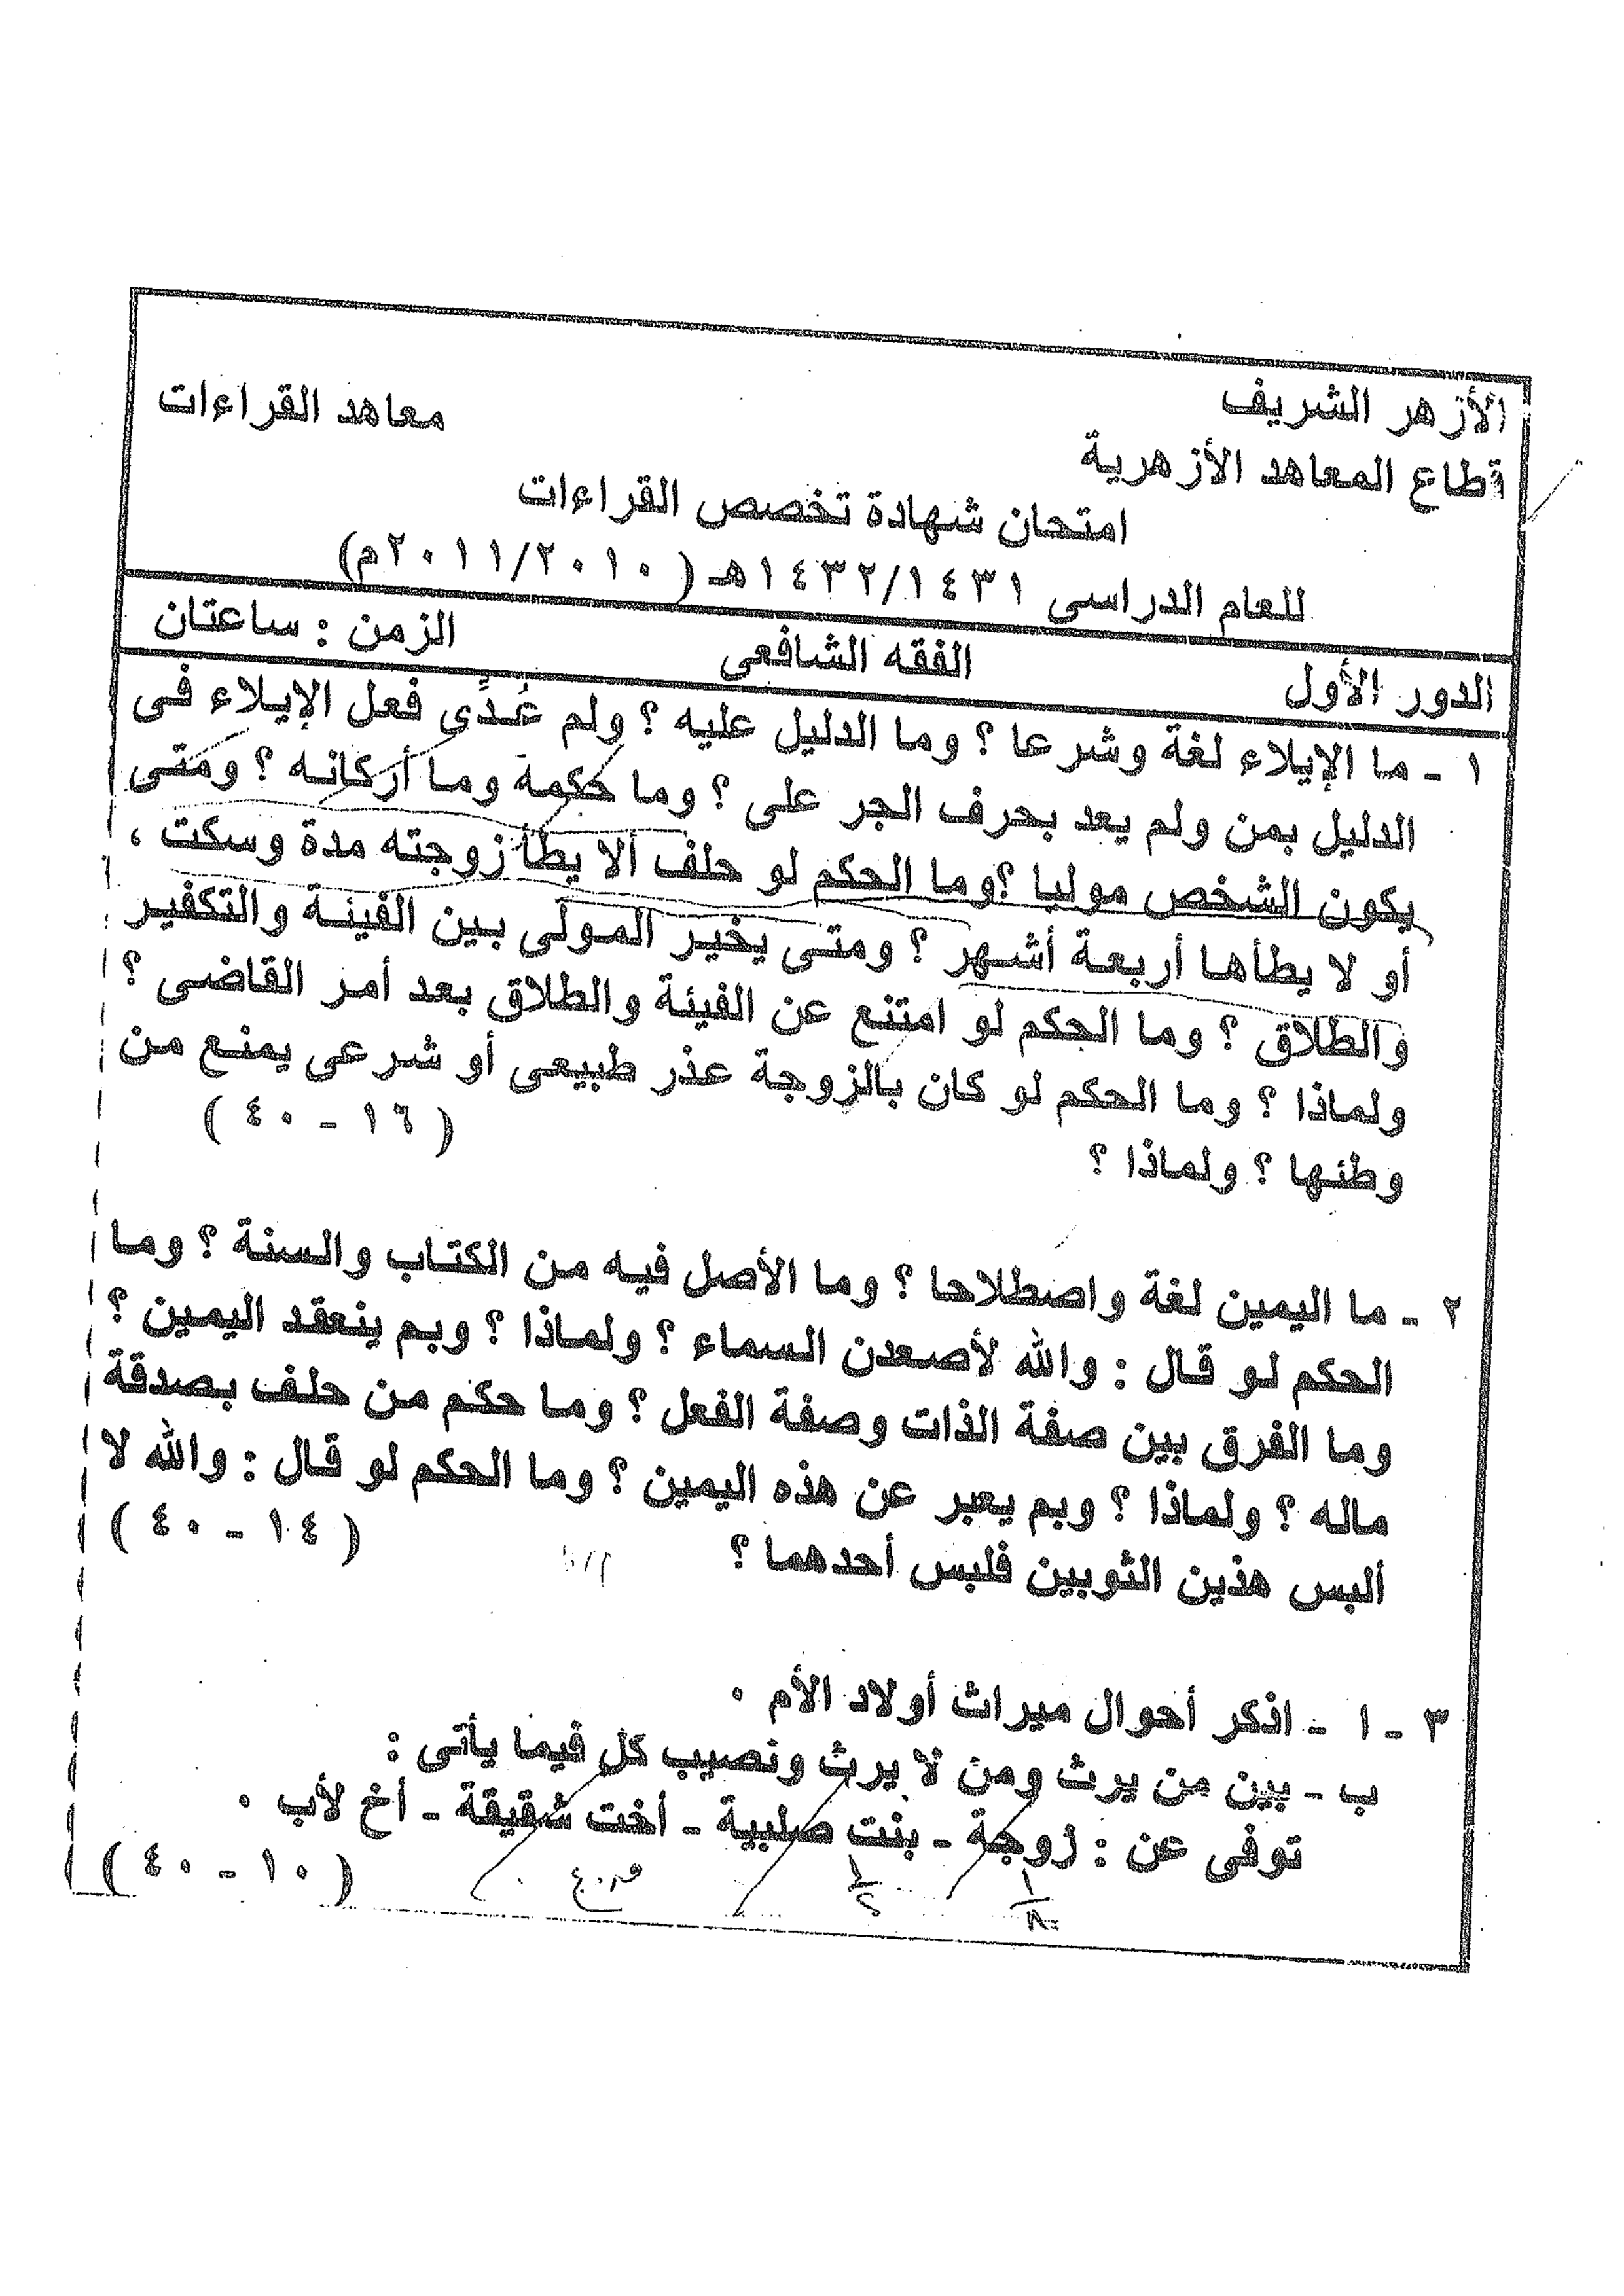 الأزهر الشريف
معاهد القراءات
قطاع المعاهد الأزهرية
امتحان شهادة تخصص القراءات
للعام الدراسى ١٤٣٢/١٤٣١هـ ( ٢٠١١/٢٠١٠م)
الدور الأول الفقه الشافعى الزمن : ساعتان
١ - ما الإيلاء لغة وشرعا ؟ وما الدليل عليه ؟ ولم عُدِّى فعل الإيلاء فى
الدليل بمن ولم يعد بحرف الجر على ؟ وما حكمة وما أركانه ؟ ومتى
يكون الشخص موليا ؟وما الحكم لو حلف ألا يطأ زوجته مدة وسكت ،
أو لا يطأها أربعة أشهر ؟ ومتى يخير المولى بين الفيئة والتكفير
والطلاق ؟ وما الحكم لو امتنع عن الفيئة والطلاق بعد أمر القاضى ؟
ولماذا ؟ وما الحكم لو كان بالزوجة عذر طبيعى أو شرعى يمنع من
وطئها ؟ ولماذا ؟ ( ١٦ - ٤٠ )
٢ - ما اليمين لغة واصطلاحا ؟ وما الأصل فيه من الكتاب والسنة ؟ وما
الحكم لو قال : والله لأصعدن السماء ؟ ولماذا ؟ وبم ينعقد اليمين ؟
وما الفرق بين صفة الذات وصفة الفعل ؟ وما حكم من حلف بصدقة
ماله ؟ ولماذا ؟ وبم يعبر عن هذه اليمين ؟ وما الحكم لو قال : والله لا
ألبس هذين الثوبين فلبس أحدهما ؟ ( ١٤ - ٤٠ )
٣ - ١ - اذكر أحوال ميراث أولاد الأم .
ب - بين من يرث ومن لا يرث ونصيب كل فيما يأتى :
توفى عن : زوجة - بنت صلبية - أخت شقيقة - أخ لأب .
( ١٠ - ٤٠ )